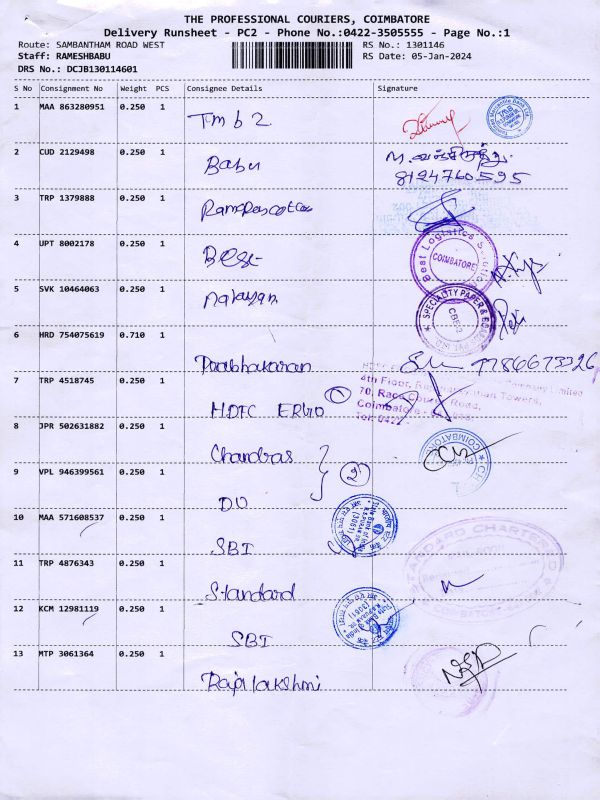 THE PROFESSIONAL COURIERS, COIMBATORE
Delivery Runsheet - PC2 - Phone No.:0422-3505555 - Page No.:1
Route: SAMBANTHAM ROAD WEST RS No.: 1301146
Staff: RAMESHBABU RS Date: 05-Jan-2024
DRS No.: DCJB130114601
S No Consignment No Weight PCS Consignee Details Signature
1 MAA 863280951 0.250 1
Tmb 2
2 CUD 2129498 0.250 1
Babu
8124760595
3 TRP 1379888 0.250 1
4 UPT 8002178 0.250 1
Best
Best Logistics
COIMBATORE
5 SVK 10464063 0.250 1
Narayan
SPECIALITY PAPER &
CBE-3
6 HRD 754075619 0.710 1
Prabhakaran
7 TRP 4518745 0.250 1
HDFC ERGO 1
4th Floor,
70, Race Course Road,
Coimbatore
8 JPR 502631882 0.250 1
Chandras
COIMBATORE
9 VPL 946399561 0.250 1
2
DO
10 MAA 571608537 0.250 1
SBI
State Bank of India
11 TRP 4876343 0.250 1
Standard
STANDARD CHARTERED
12 KCM 12981119 0.250 1
SBI
State Bank of India
13 MTP 3061364 0.250 1
Rajalakshmi